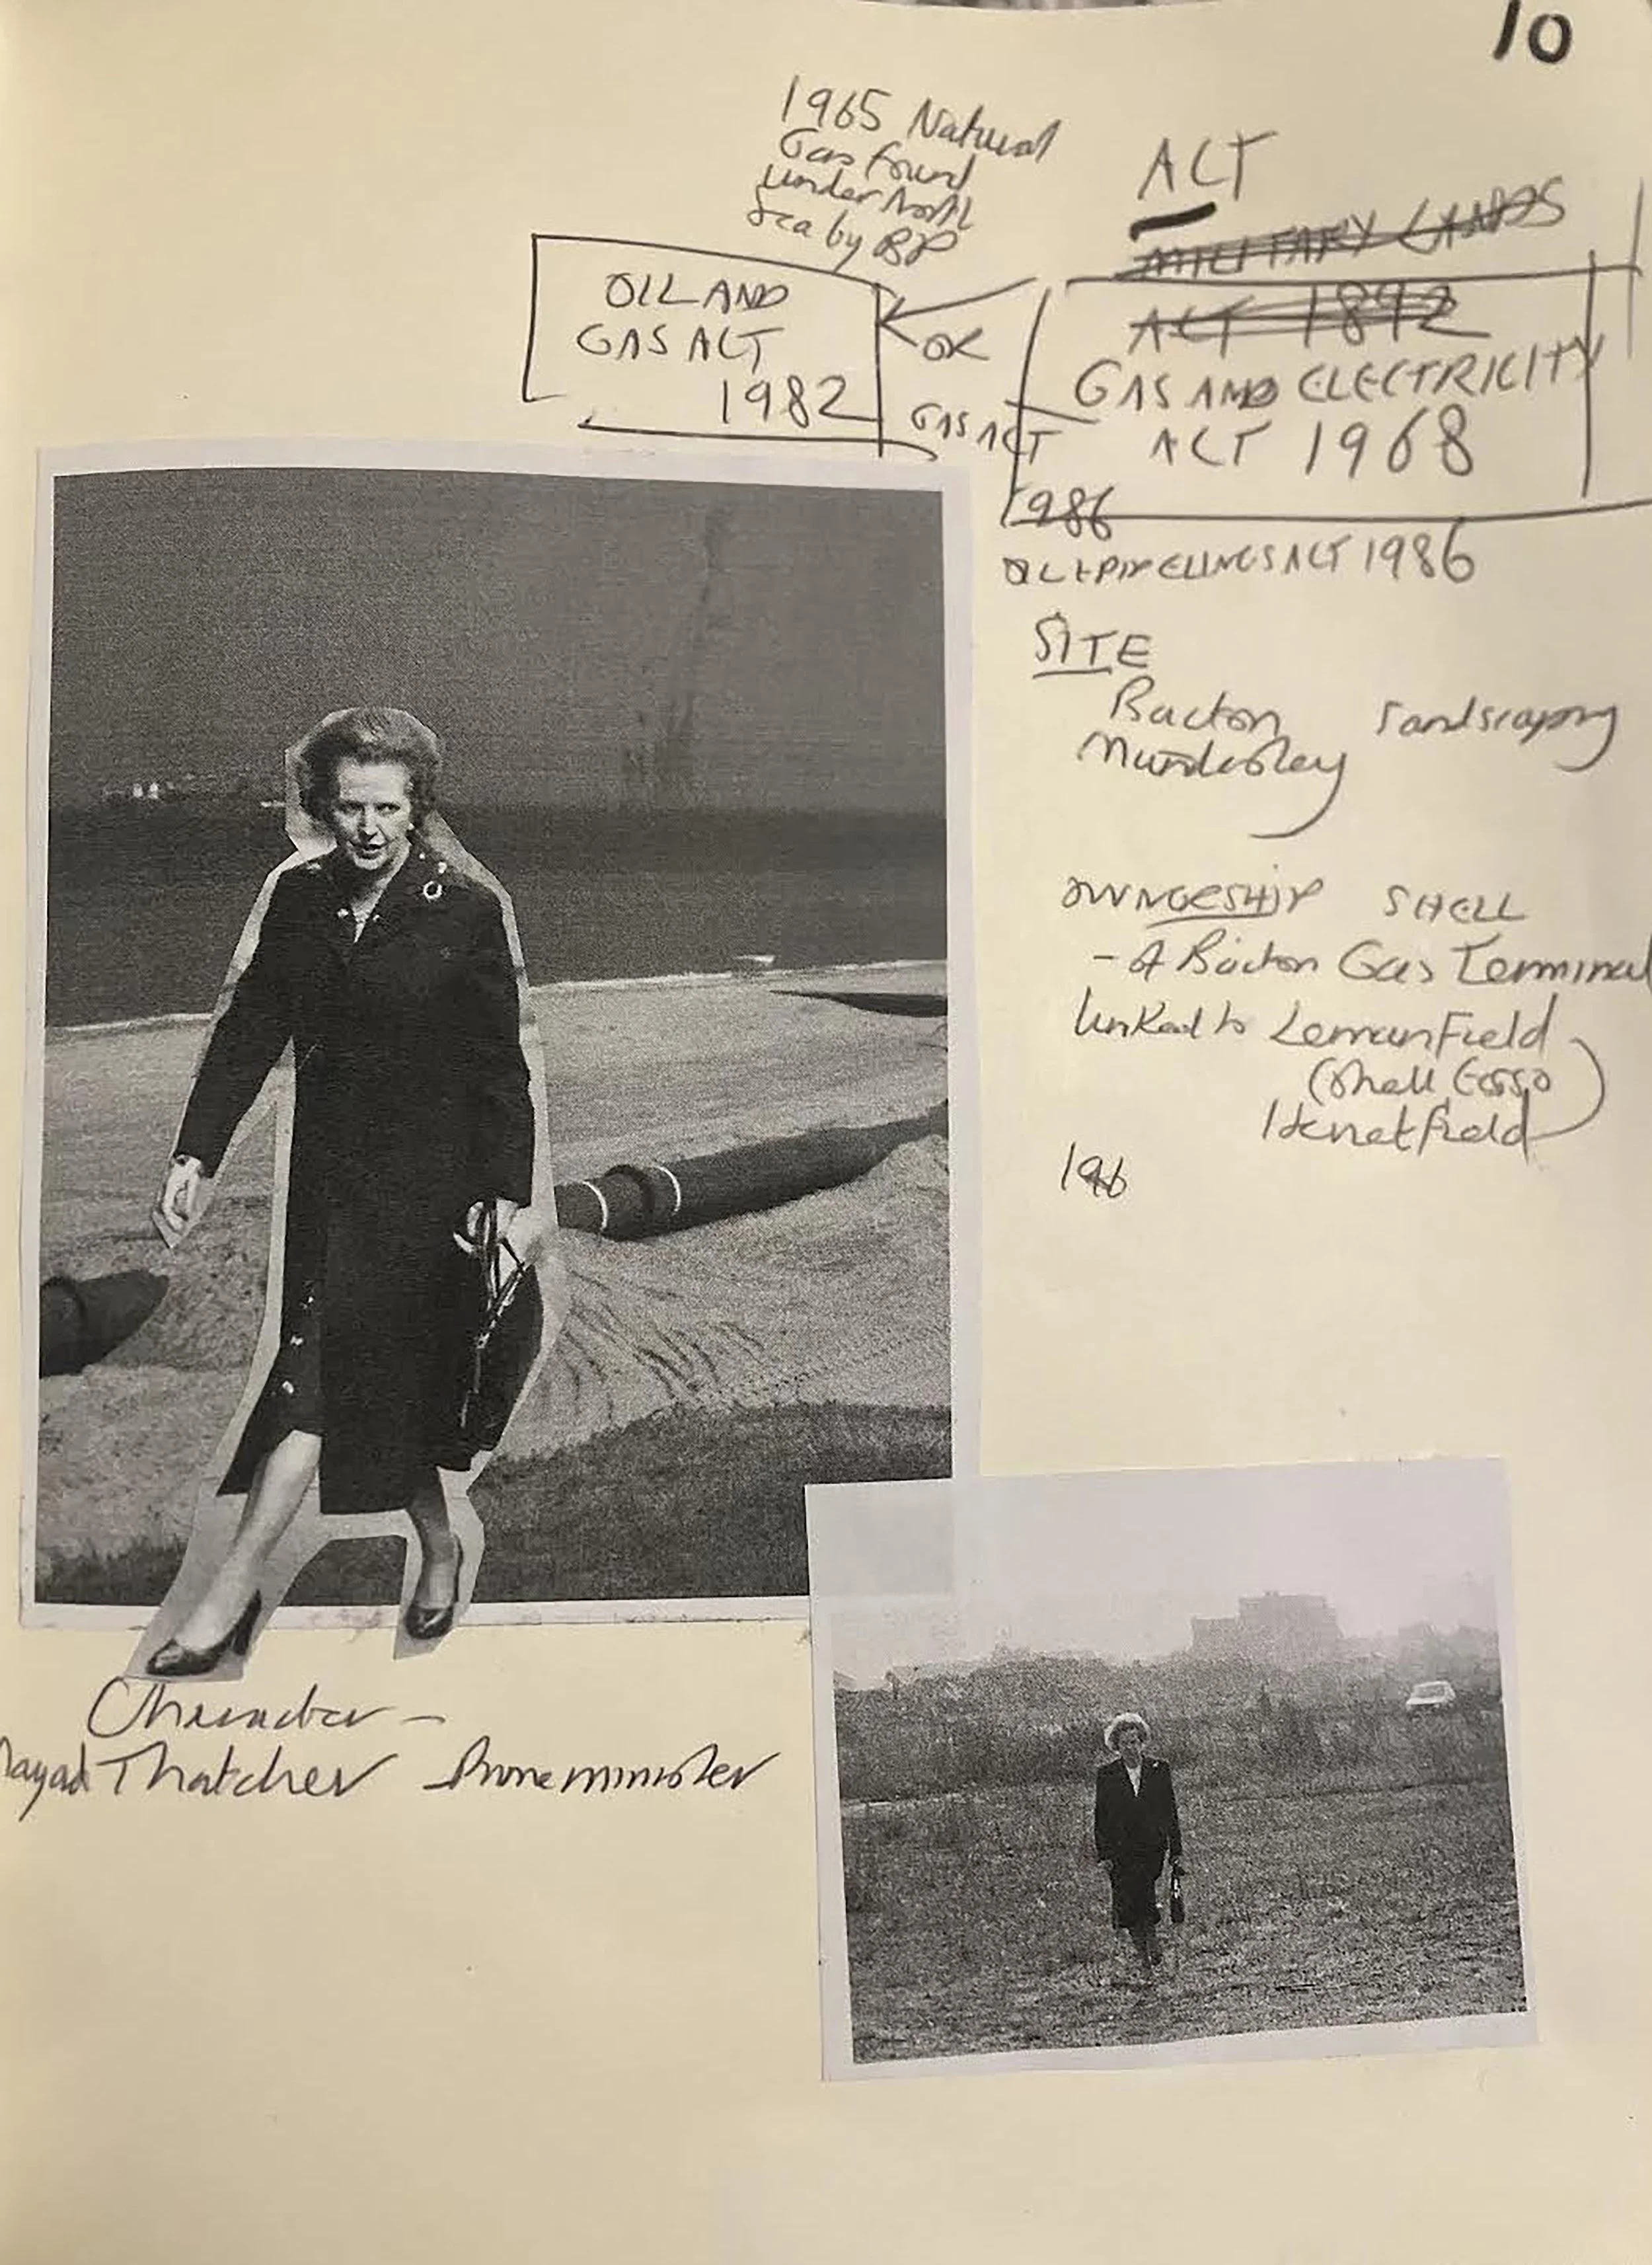 10
1965 Natural
Gas Found
under North
Sea by BP
ACT
MILITARY LANDS
ACT 1892
OIL AND
GAS ACT
1982
OR
GAS ACT
1986
GAS AND ELECTRICITY
ACT 1968
OIL + PIPELINES ACT 1986
SITE
Bacton
Mundesley
Landscaping
OWNERSHIP SHELL
- A Bacton Gas Terminal
linked to Leman Field
(Shell Esso
field)
196
Character -
Thatcher - Prime minister